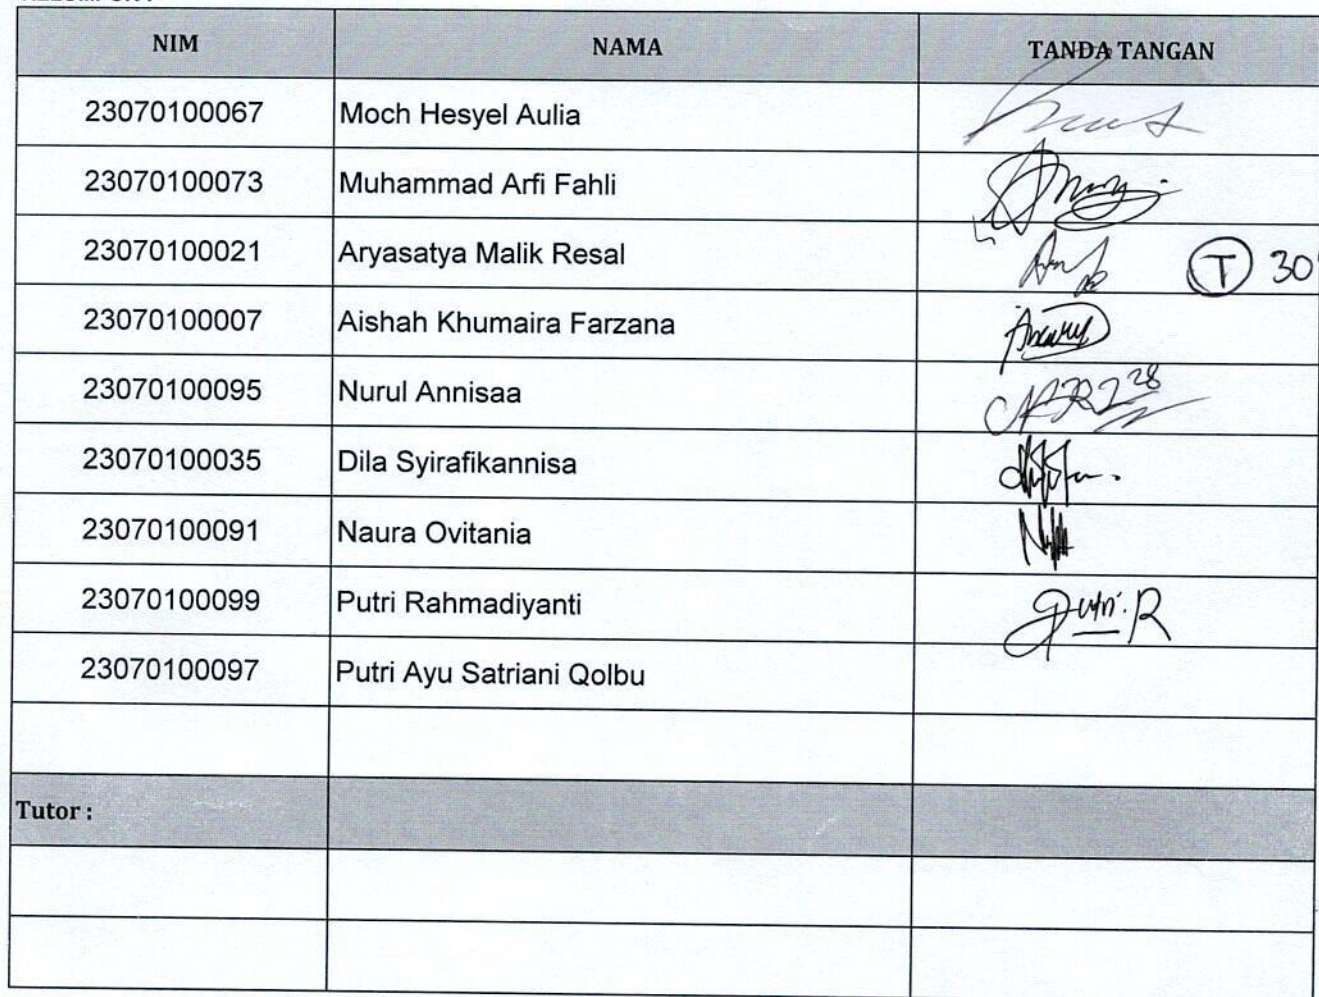 NIM NAMA TANDA TANGAN
23070100067 Moch Hesyel Aulia
23070100073 Muhammad Arfi Fahli
23070100021 Aryasatya Malik Resal T 30'
23070100007 Aishah Khumaira Farzana
23070100095 Nurul Annisaa
23070100035 Dila Syirafikannisa
23070100091 Naura Ovitania
23070100099 Putri Rahmadiyanti Putri. R
23070100097 Putri Ayu Satriani Qolbu
Tutor :